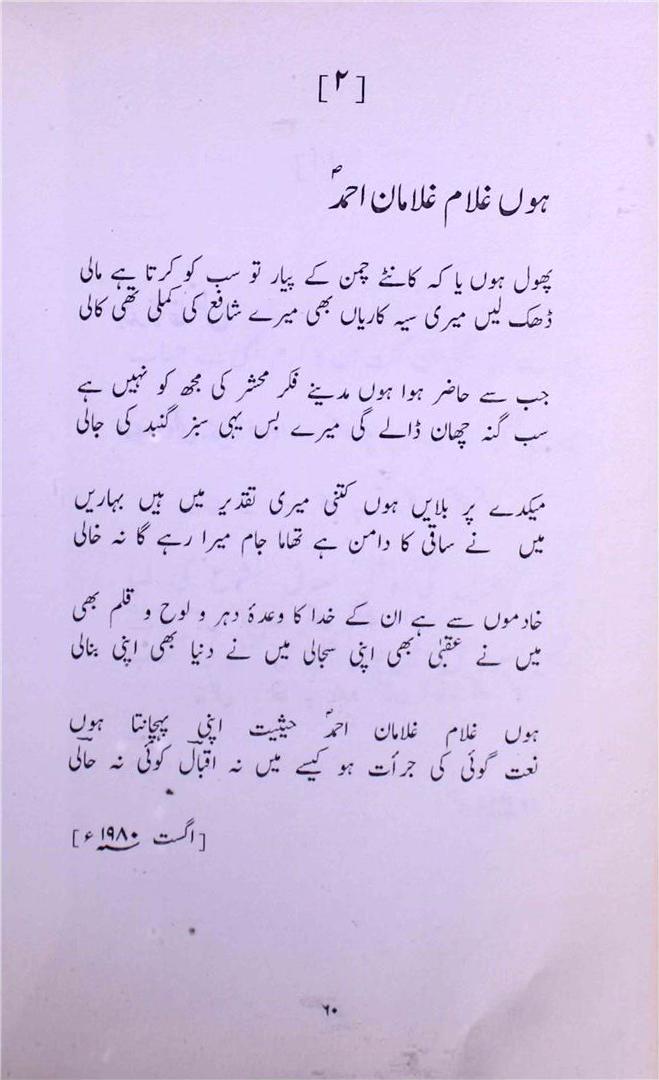 [۲]
ہوں غلام غلامان احمدؐ
پھول ہوں یا کہ کانٹے چمن کے پیار تو سب کو کرتا ہے مالی
ڈھک لیں میری سیہ کاریاں بھی میرے شافع کی کملی تھی کالی
جب سے حاضر ہوا ہوں مدینے فکر محشر کی مجھ کو نہیں ہے
سب گنہ چھان ڈالے گی میرے بس یہی سبز گنبد کی جالی
میکدے پر بلایں ہوں کتنی میری تقدیر میں ہیں بہاریں
میں نے ساقی کا دامن ہے تھاما جام میرا رہے گا نہ خالی
خادموں سے ہے ان کے خدا کا وعدۂ دہر و لوح و قلم بھی
میں نے عقبیٰ بھی اپنی سجالی میں نے دنیا بھی اپنی بنالی
ہوں غلام غلامان احمدؐ حیثیت اپنی پہچانتا ہوں
نعت گوئی کی جرأت ہو کیسے میں نہ اقبالؔ کوئی نہ حالیؔ
[اگست ۱۹۸۰ء]
۶۰